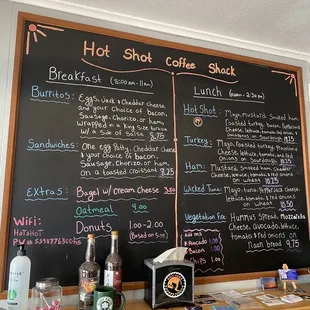 Hot Shot Coffee Shack
Breakfast (8:00am-11am)
Burritos: Eggs, Jack & Cheddar Cheese
and your choice of bacon,
Sausage, Chorizo, or ham,
Wrapped in a King size tortilla
w/ a Side of Salsa 8.75
Sandwiches: One egg Patty, Cheddar Cheese
& your choice of bacon,
Sausage, Chorizo, or ham,
on a toasted Croissant 8.25
Extras: Bagel w/ cream Cheese 3.50
Oatmeal 4.00
Donuts 1.00-2.00
(Based on Size)
WiFi:
HOTSHOT
PW
Lunch (11am-2:30pm)
Hot Shot: Mayo, mustard, Smoked ham,
Toasted turkey, bacon,
Cheese, lettuce, tomato, and red
onions on Sourdough
Turkey: Mayo, Toasted turkey, Provolone
Cheese, lettuce, tomato, and red
onions on Sourdough
Ham: Mayo, mustard, Smoked ham, Cheddar
Cheese, lettuce, tomato, and red onions
on wheat
Wicked Tuna: Mayo, tuna, Pepperjack Cheese,
lettuce, tomato, and red onions
on wheat
Hummus Spread, Mozzarella
Cheese, avocado, lettuce,
tomato, and red onions on
Naan bread 9.75
Add ons
Avocado
Bacon
Chips